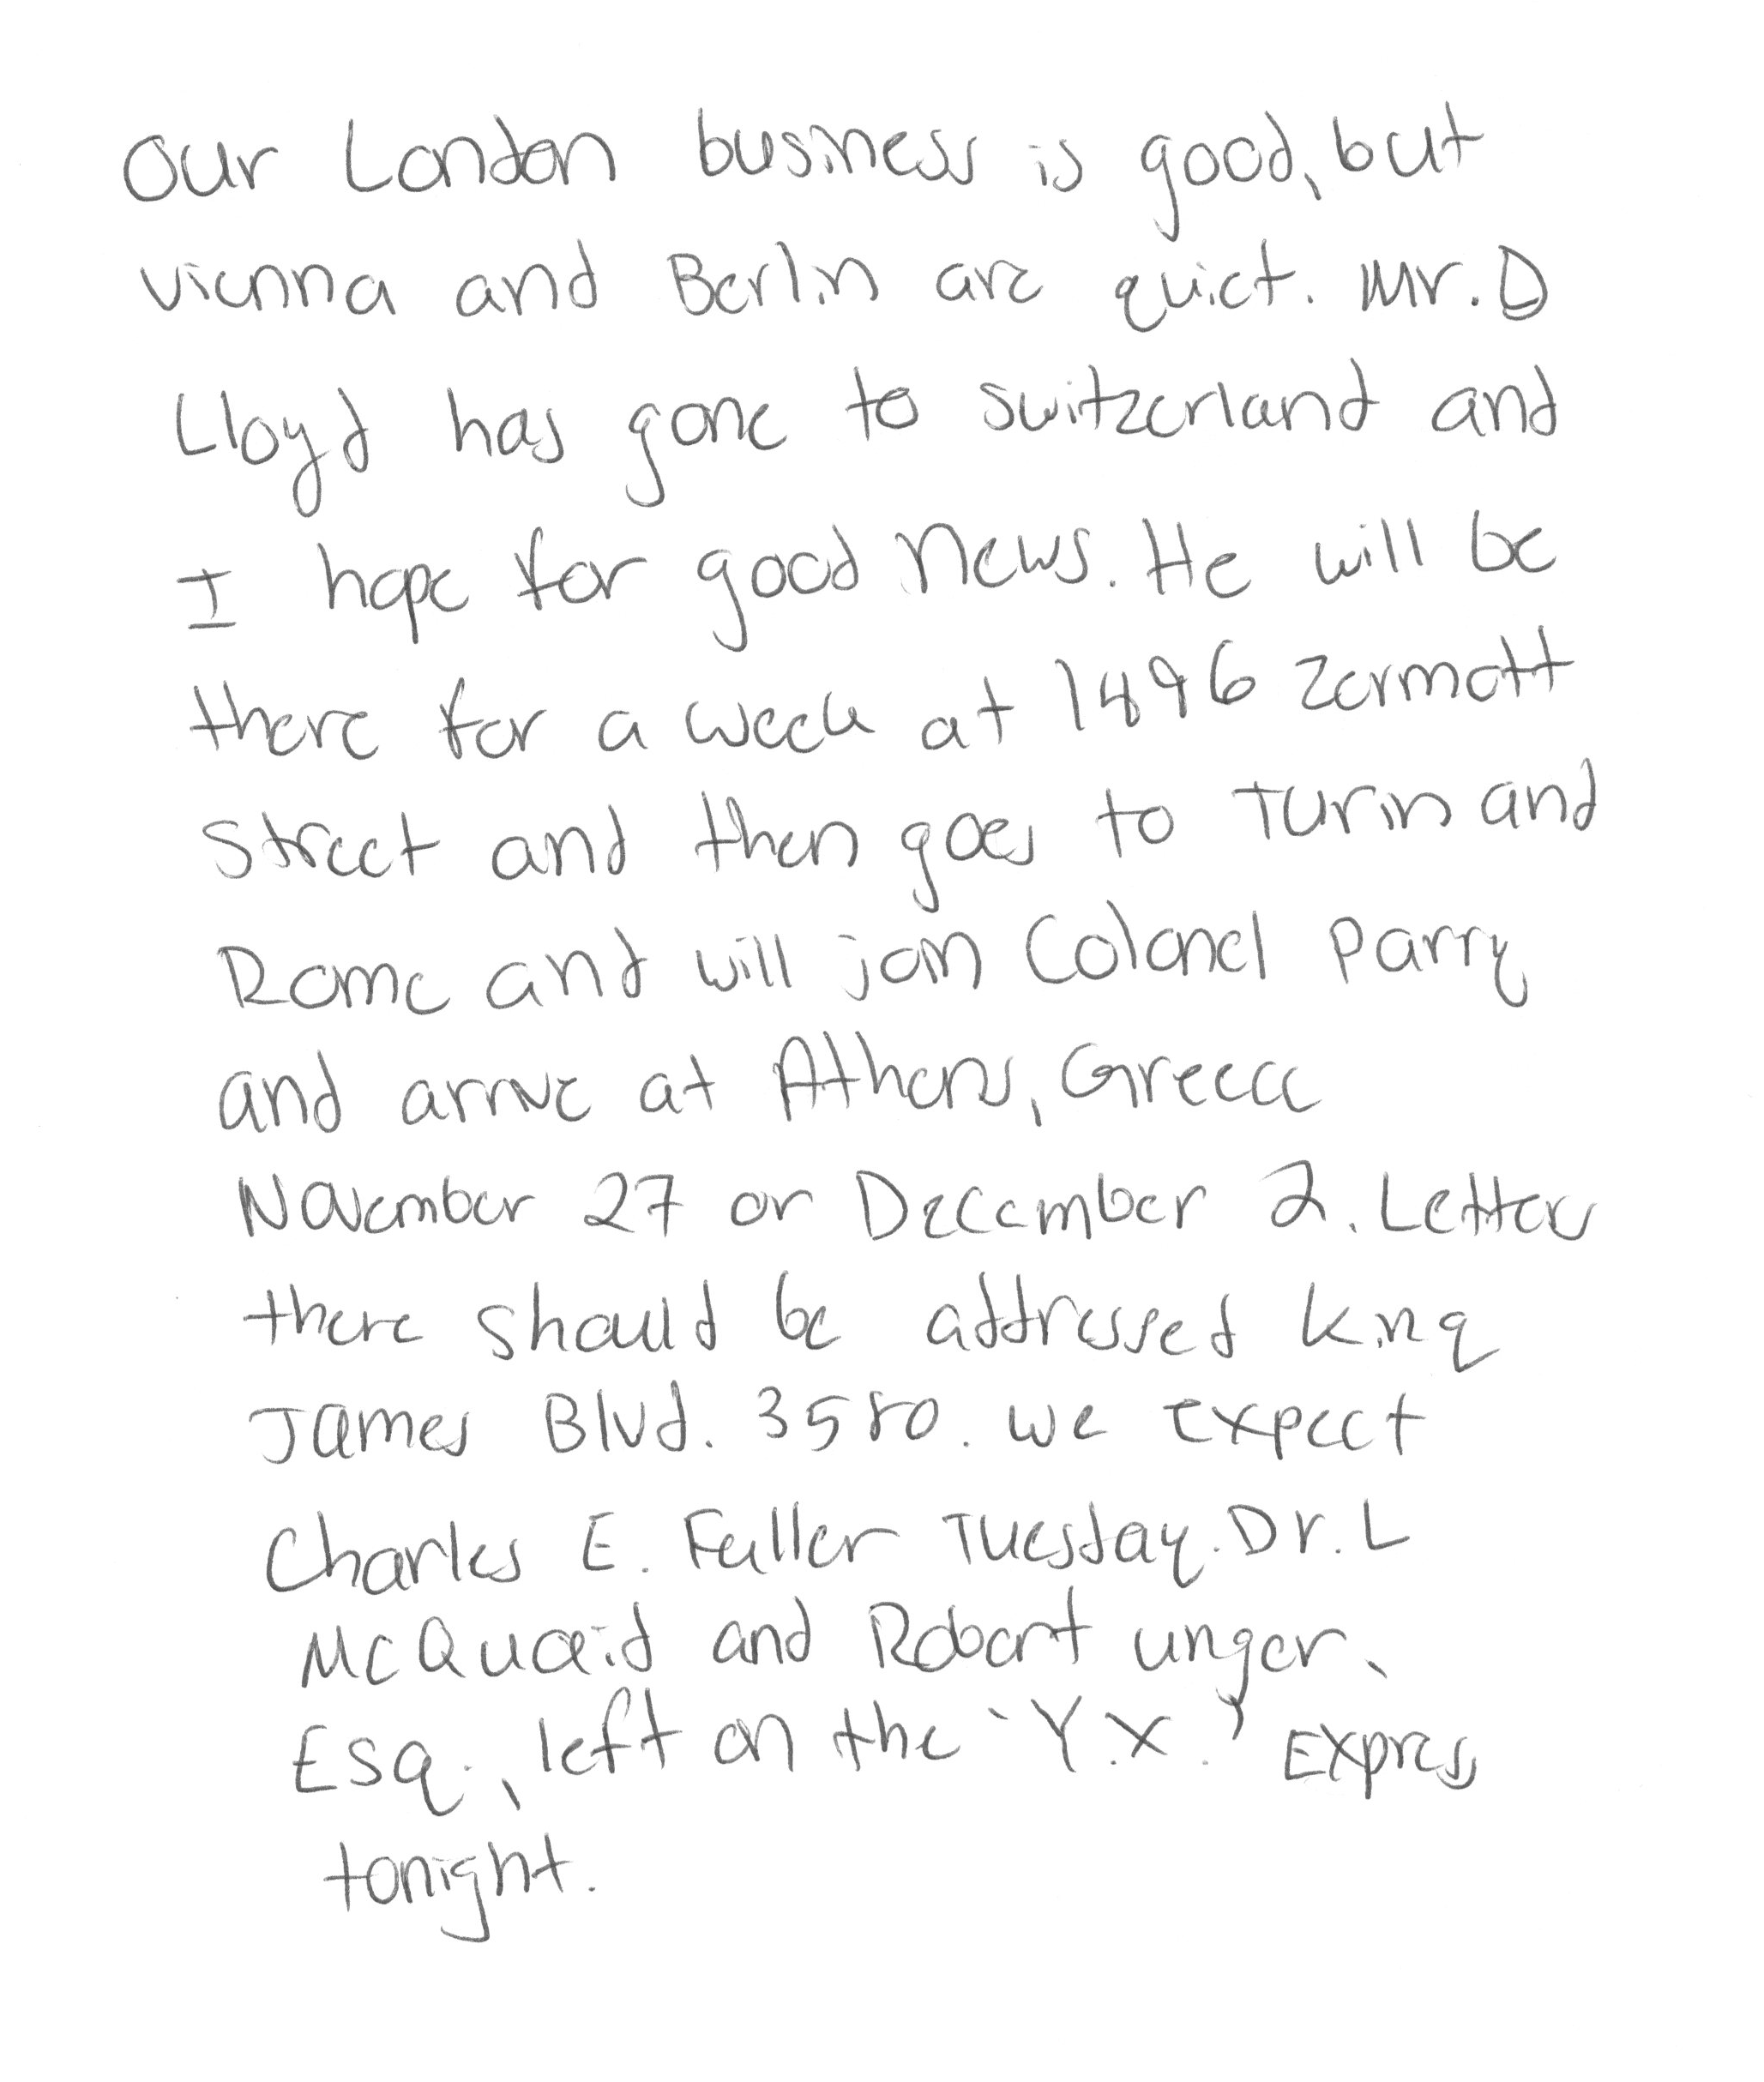 Our London business is good, but
Vienna and Berlin are quiet. Mr. D
Lloyd has gone to Switzerland and
I hope for good news. He will be
there for a week at 1496 Zermott
Street and then goes to Turin and
Rome and will join Colonel Parry
and arrive at Athens, Greece
November 27 or December 2. Letters
there should be addressed King
James Blvd. 3580. We expect
Charles E. Fuller Tuesday. Dr. L
McQuaid and Robert Unger,
Esq., left on the 'Y.X.' Express
tonight.